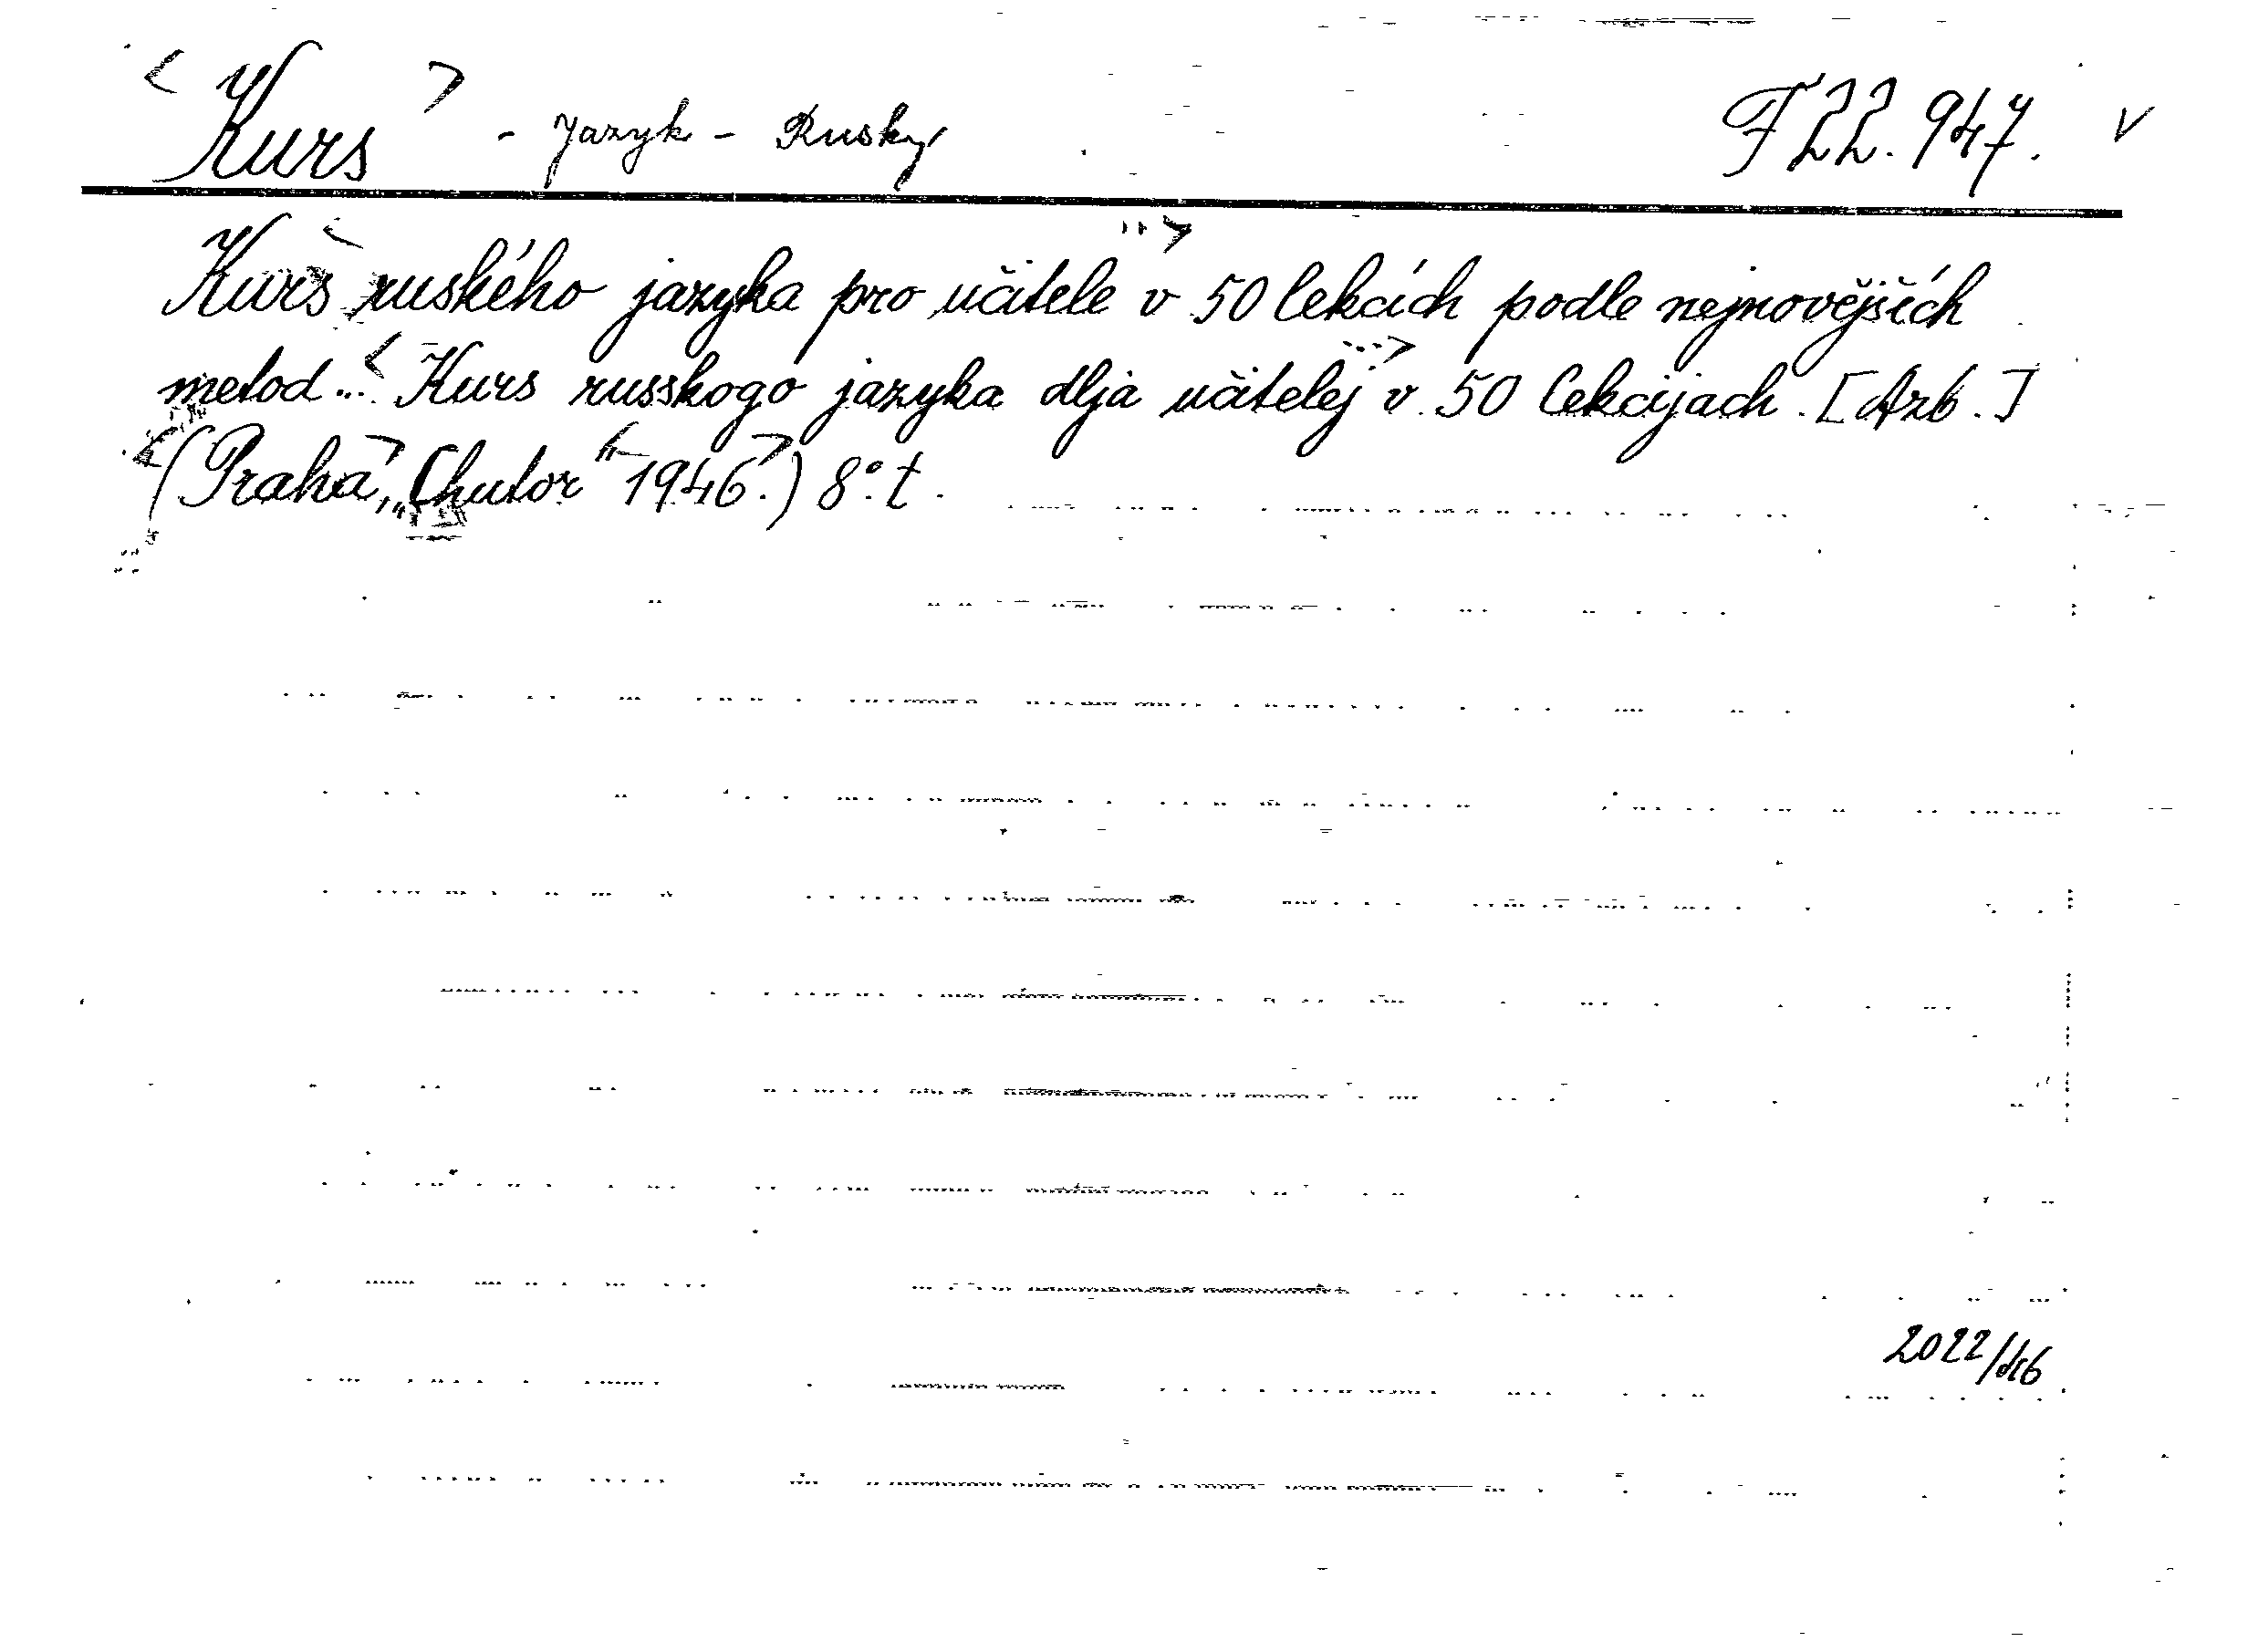 < Kurs > - Jazyk - Ruský F 22.947. v
Kurs ruského jazyka pro učitele v 50 lekcích podle nejnovějších
metod... Kurs russkogo jazyka dlja učitelej v 50 lekcijach. [Azb.]
(Praha, „Chutor“ 1946.) 8°. t.
2022/46